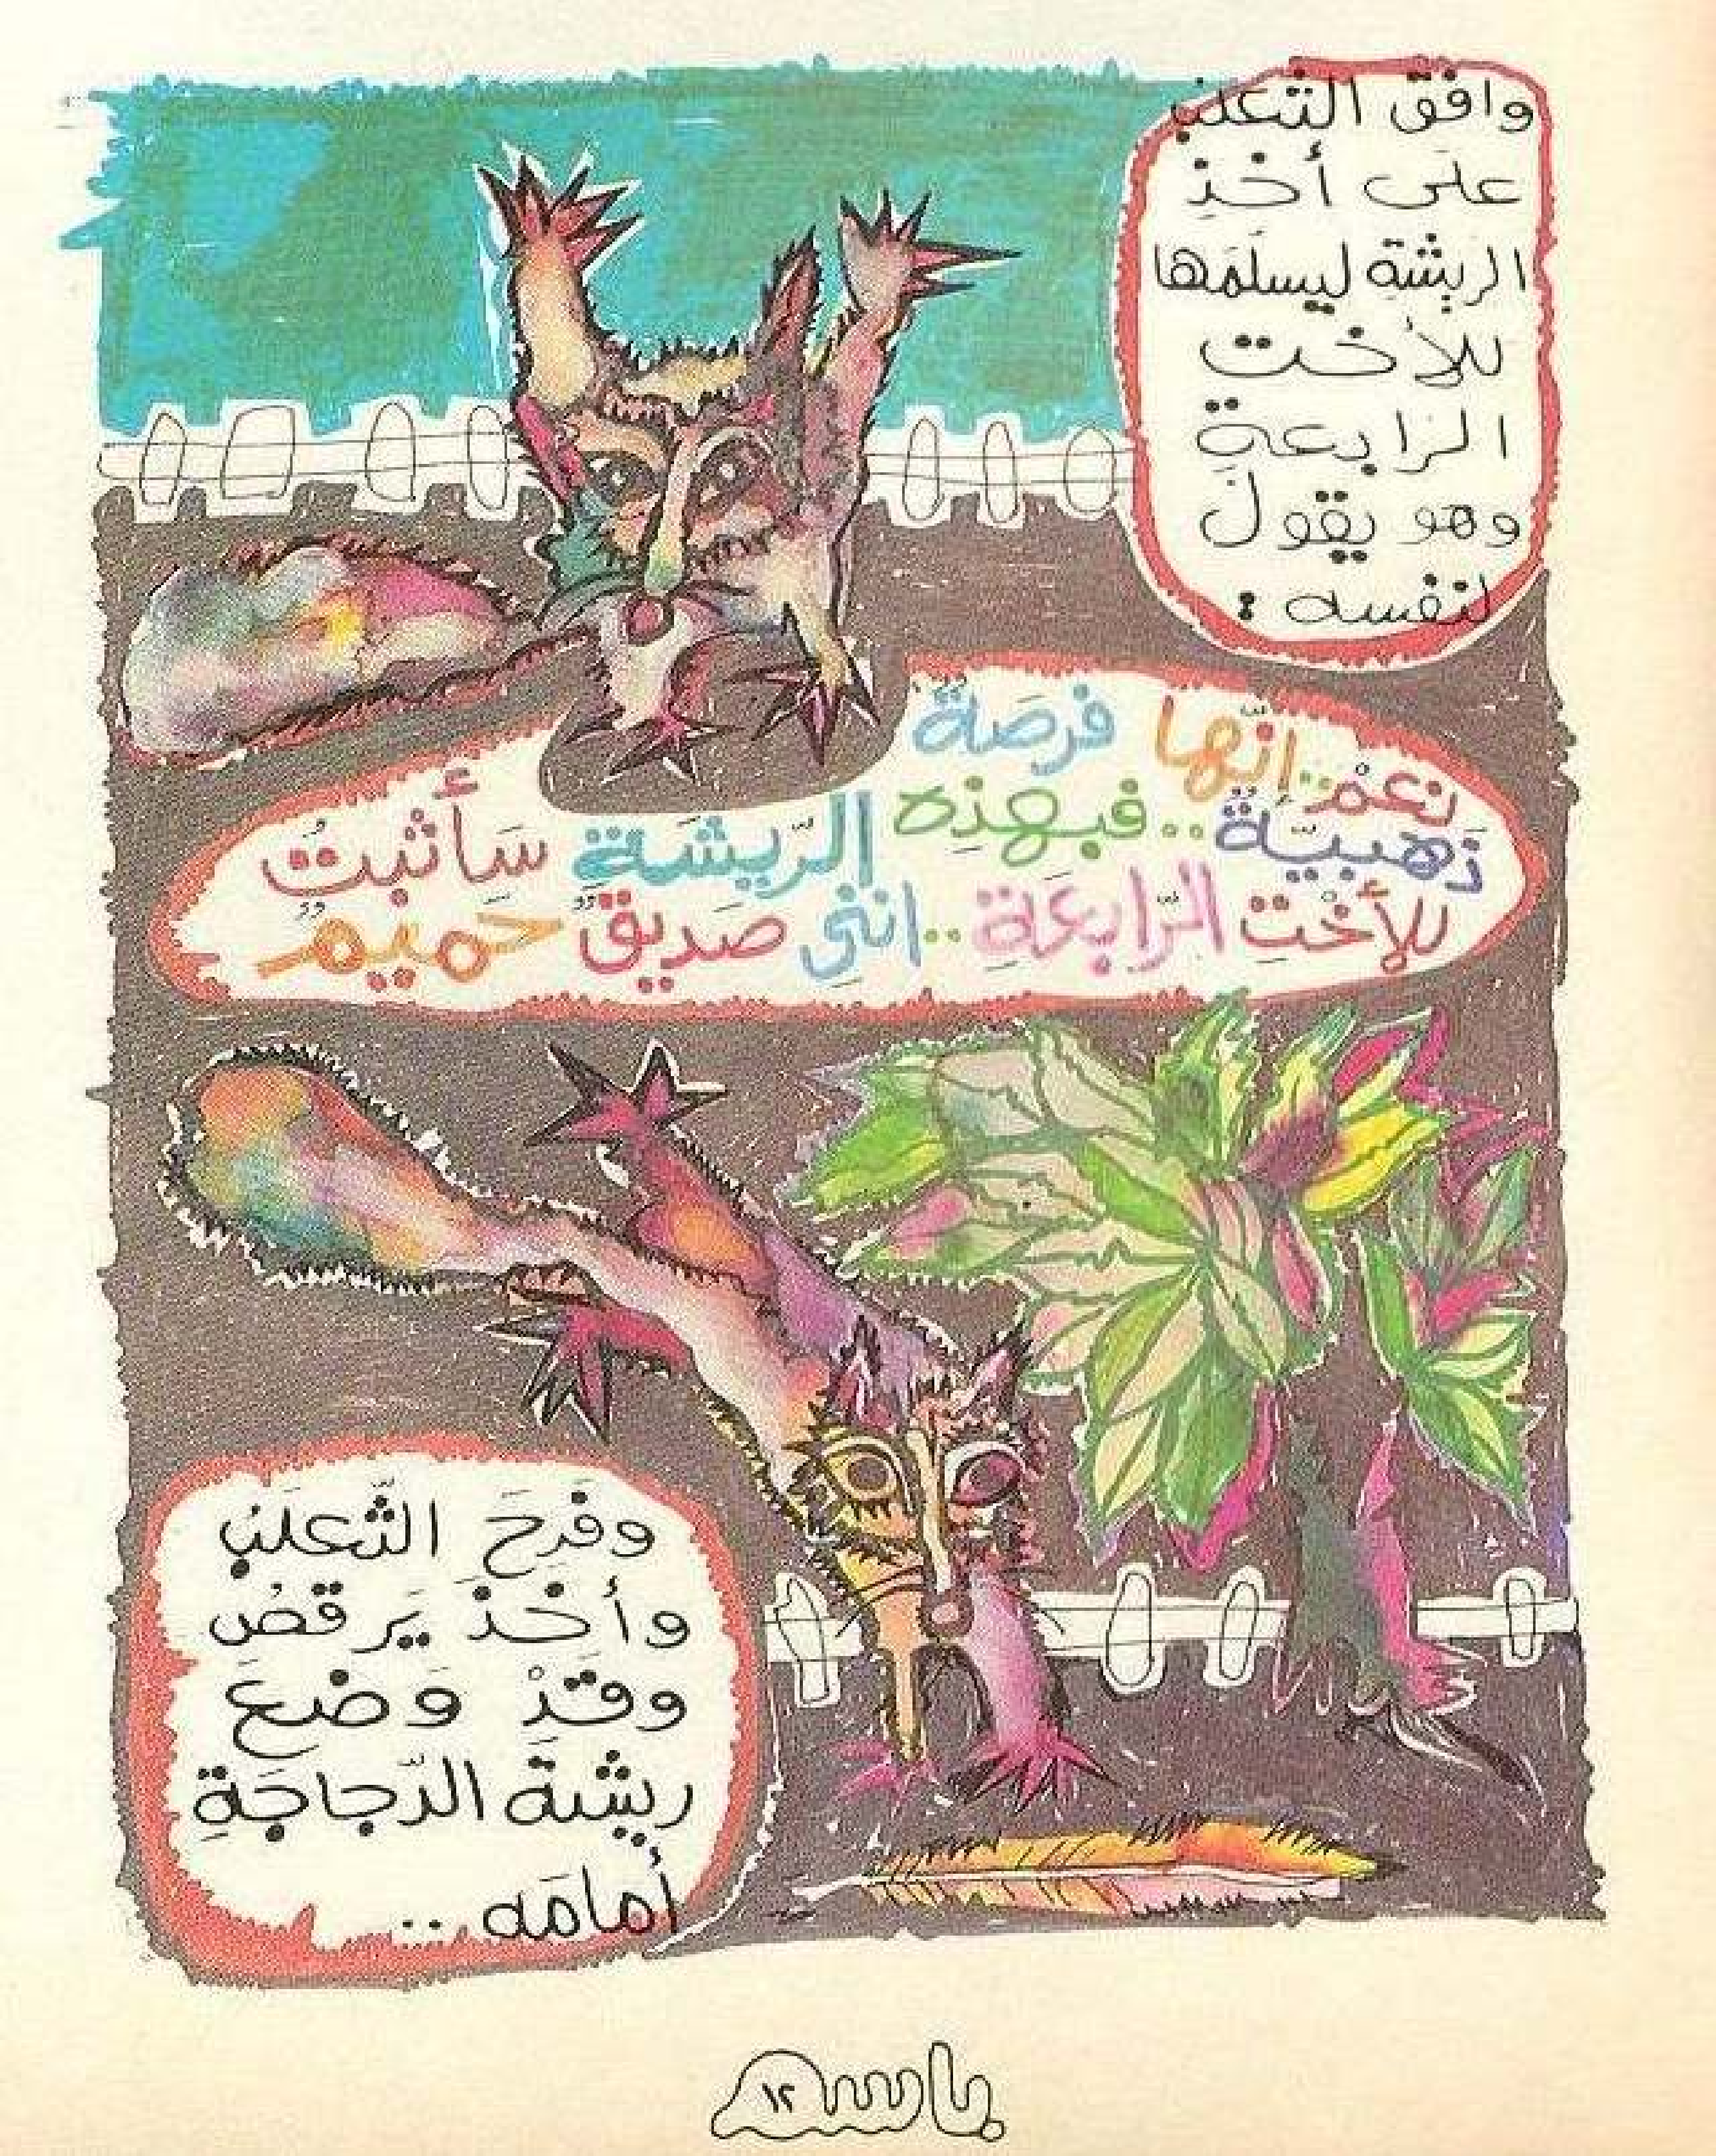 وافق الثعلب
على أخذِ
الريشةِ ليسلمَها
للأخت
الرابعةِ
وهو يقولُ
لنفسه :
نعمْ..انّها فرصَةٌ
ذَهبيّةٌ..فبهذِه الرّيشَةِ سَأثبتُ
للأختِ الرّابعَةِ..انني صَديقٌ حَميمٌ
وفَرِحَ الثّعلَبُ
وأخَذَ يَرقصُ
وقدْ وَضعَ
ريشةَ الدّجاجَةِ
أمامَه ..
باسم
١٢